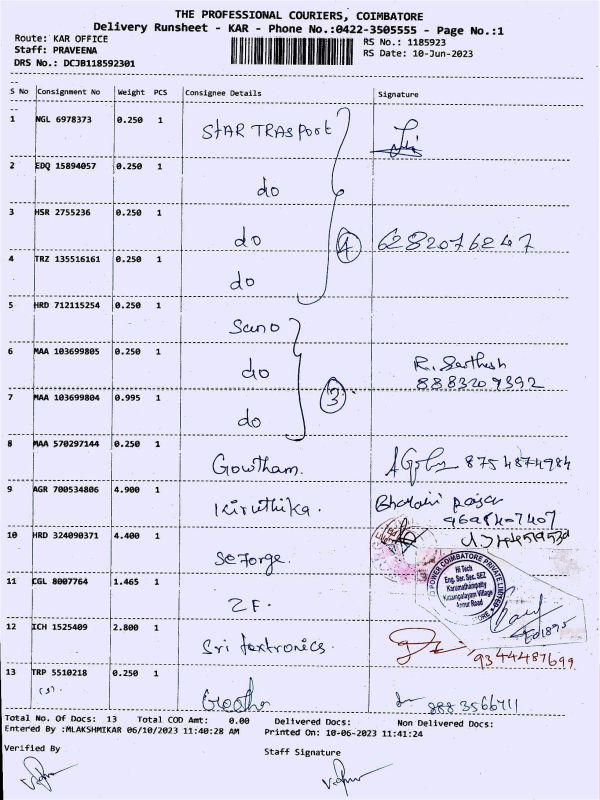 THE PROFESSIONAL COURIERS, COIMBATORE
Delivery Runsheet - KAR - Phone No.:0422-3505555 - Page No.:1
Route: KAR OFFICE
RS No.: 1185923
Staff: PRAVEENA
RS Date: 10-Jun-2023
DRS No.: DCJB118592301
S No Consignment No Weight PCS Consignee Details Signature
1 NGL 6978373 0.250 1 StAR TRASport
2 EDQ 15894057 0.250 1 do
3 HSR 2755236 0.250 1 do 4 6282076247
4 TRZ 135516161 0.250 1 do
5 HRD 712115254 0.250 1 Sano
6 MAA 103699805 0.250 1 do R. Sarthish
8883209392
7 MAA 103699804 0.995 1 do 3
8 MAA 570297144 0.250 1 Gowtham. 8754874984
9 AGR 700534806 4.900 1 Kiruthika.
9698407407
10 HRD 324090371 4.400 1 SeForge.
11 CGL 8007764 1.465 1 ZF.
POWER COIMBATORE PRIVATE LIMITED
Hi Tech
Eng. Ser. Sec. SEZ
Karumathampatty
Kittampalayam Village
Annur Road
12 ICH 1525409 2.800 1 Sri textronics. 9344487699
13 TRP 5510218 0.250 1 Geetha 8883566711
(s).
Total No. Of Docs: 13 Total COD Amt: 0.00 Delivered Docs: Non Delivered Docs:
Entered By :MLAKSHMIKAR 06/10/2023 11:40:28 AM Printed On: 10-06-2023 11:41:24
Verified By Staff Signature